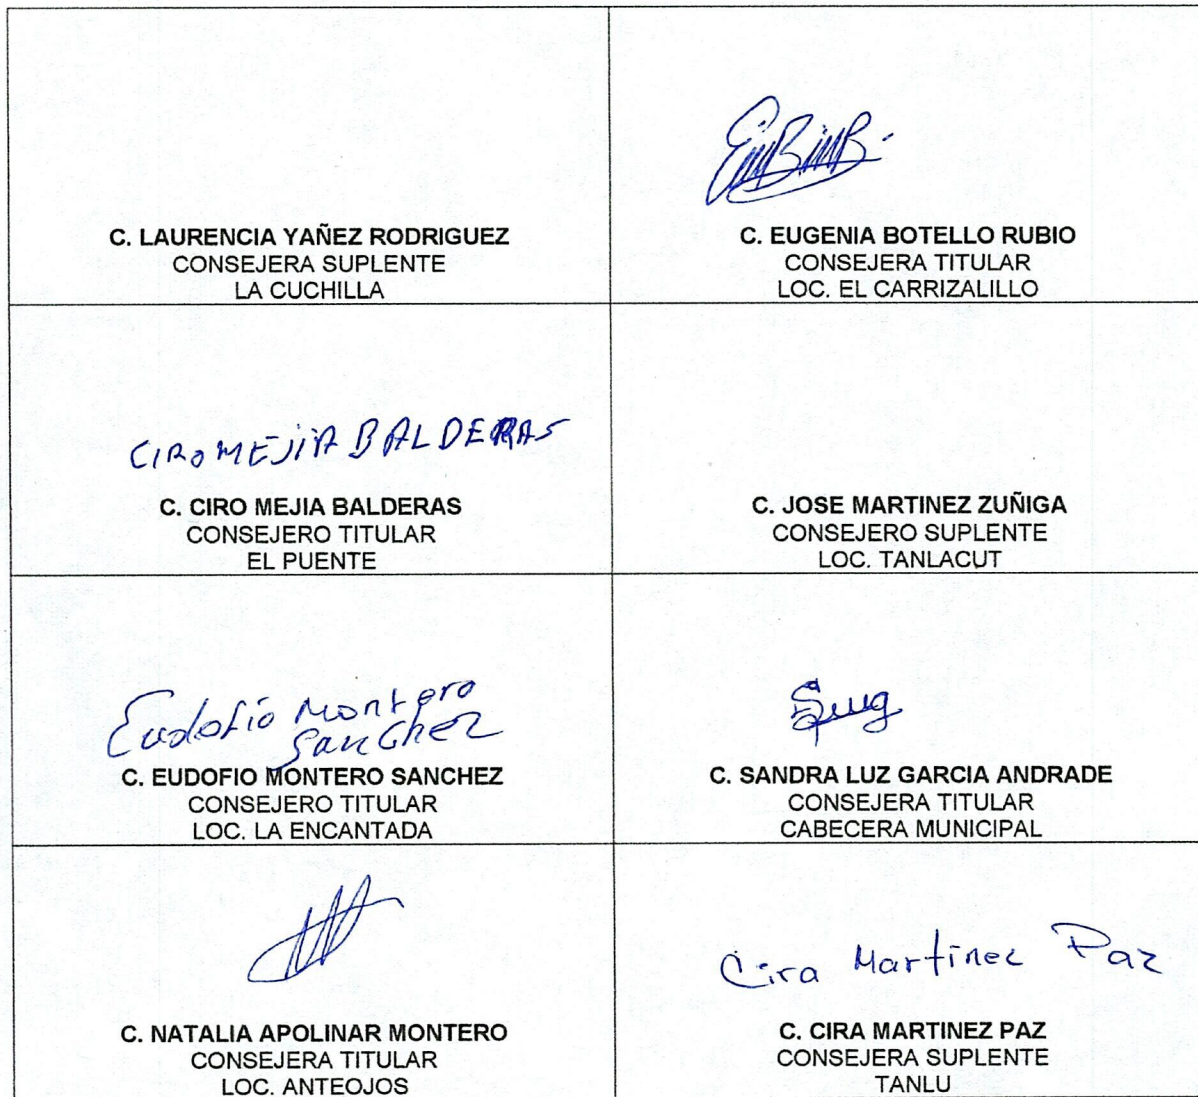 C. LAURENCIA YAÑEZ RODRIGUEZ
CONSEJERA SUPLENTE
LA CUCHILLA
C. EUGENIA BOTELLO RUBIO
CONSEJERA TITULAR
LOC. EL CARRIZALILLO
CIRO MEJIA BALDERAS
C. CIRO MEJIA BALDERAS
CONSEJERO TITULAR
EL PUENTE
C. JOSE MARTINEZ ZUÑIGA
CONSEJERO SUPLENTE
LOC. TANLACUT
Eudofio Montero
Sanchez
C. EUDOFIO MONTERO SANCHEZ
CONSEJERO TITULAR
LOC. LA ENCANTADA
C. SANDRA LUZ GARCIA ANDRADE
CONSEJERA TITULAR
CABECERA MUNICIPAL
C. NATALIA APOLINAR MONTERO
CONSEJERA TITULAR
LOC. ANTEOJOS
Cira Martinez Paz
C. CIRA MARTINEZ PAZ
CONSEJERA SUPLENTE
TANLU